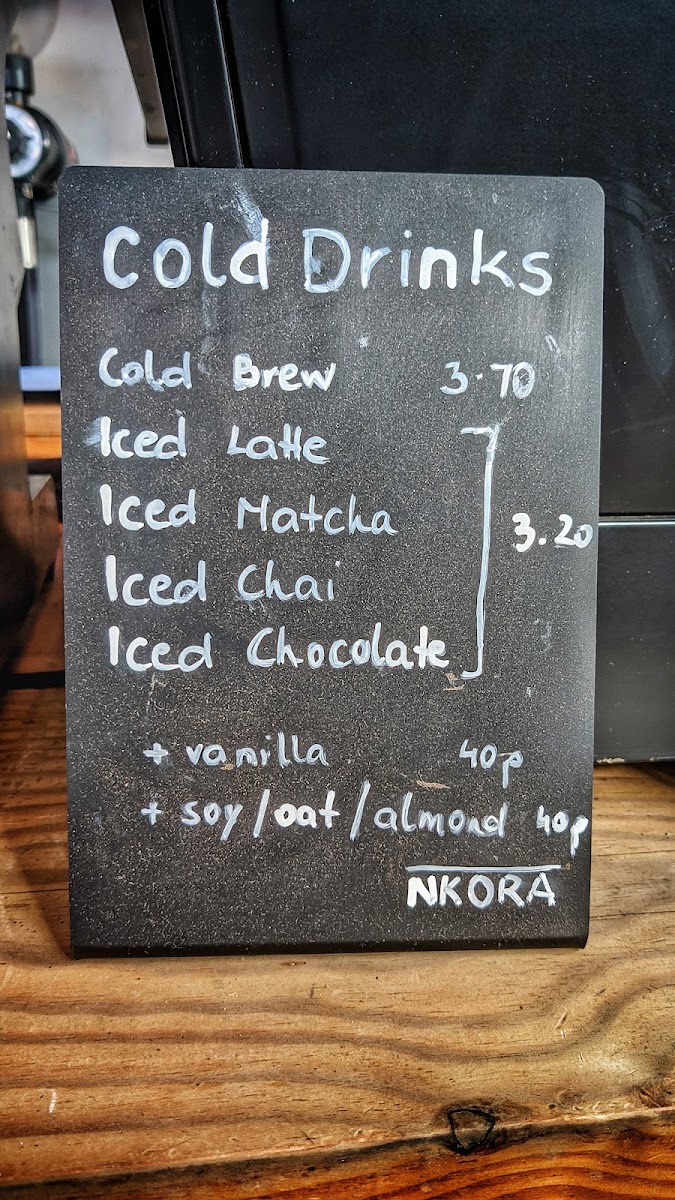 Cold Drinks
Cold Brew 3.70
Iced Latte
Iced Matcha
3.20
Iced Chai
Iced Chocolate
+ vanilla 40p
+ soy/oat/almond 40p
NKORA